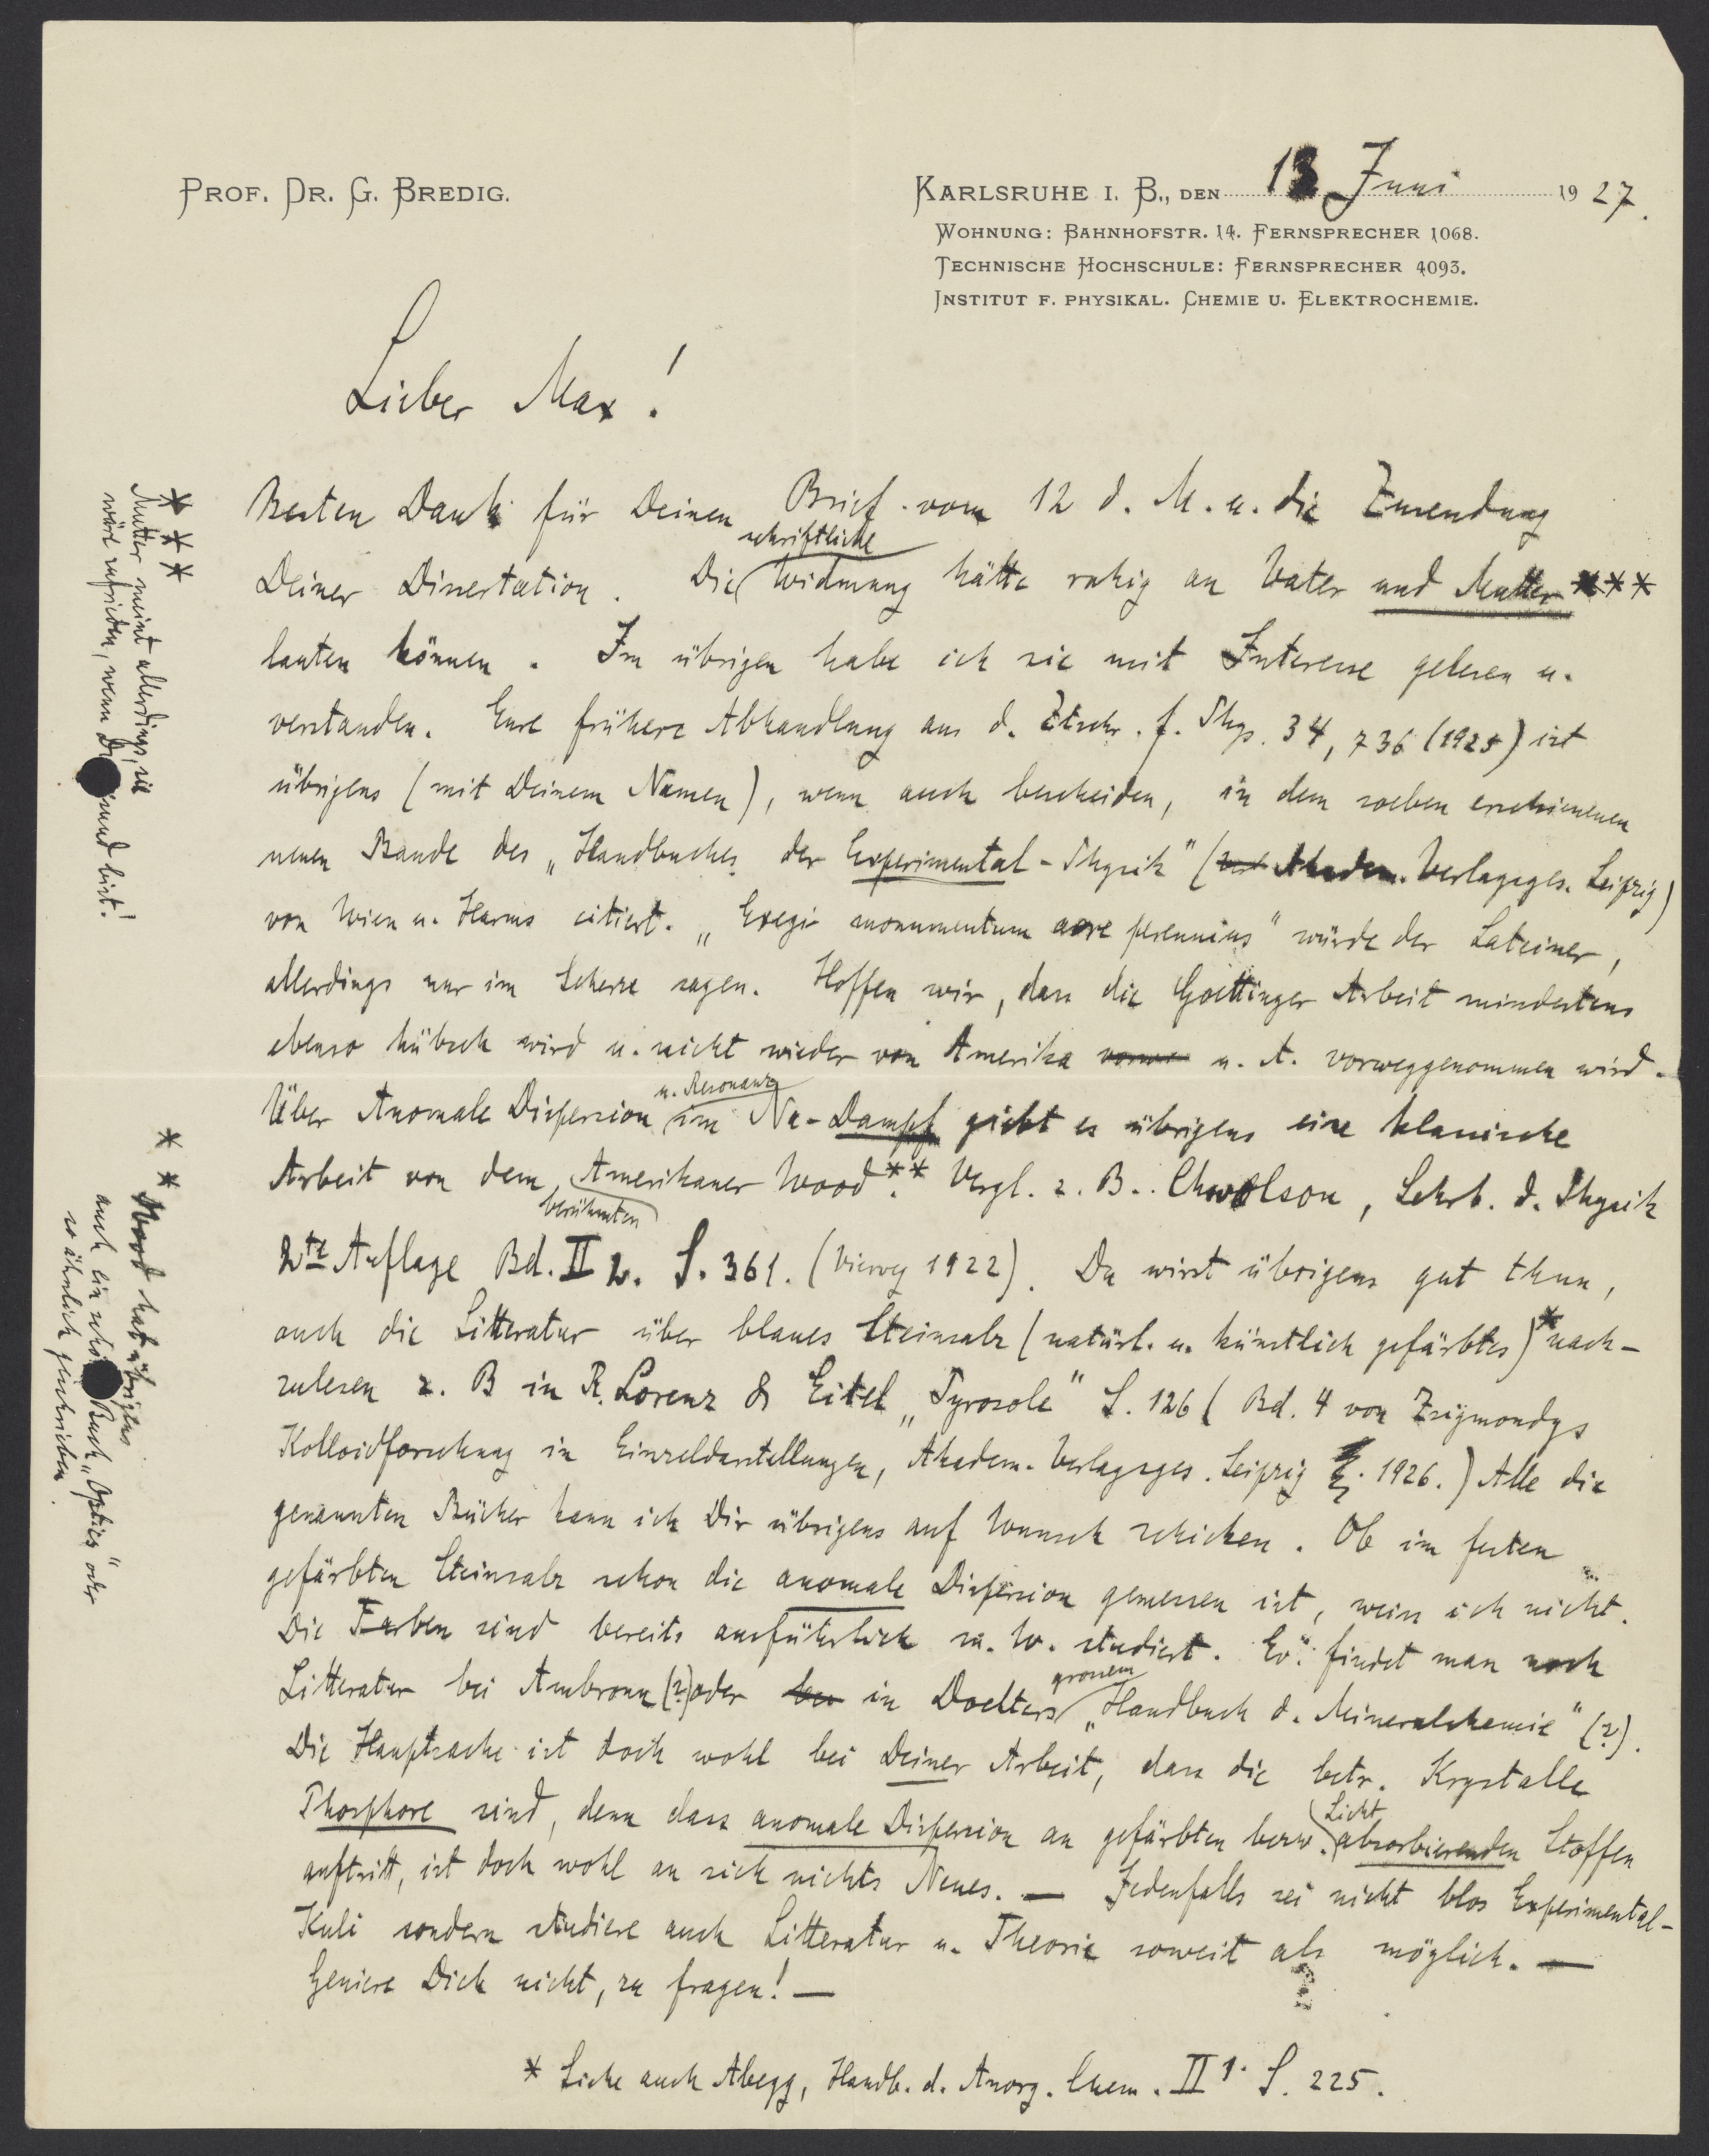 PROF. DR. G. BREDIG.
KARLSRUHE I. B., DEN 13 Juni 1927.
WOHNUNG: BAHNHOFSTR. 14. FERNSPRECHER 1068.
TECHNISCHE HOCHSCHULE: FERNSPRECHER 4093.
INSTITUT F. PHYSIKAL. CHEMIE U. ELEKTROCHEMIE.
Lieber Max!
Besten Dank für Deinen Brief vom 12 d. M. u. die Zusendung
Deiner Dissertation. Die schriftliche Widmung hätte ruhig an Vater und Mutter ***
lauten können. Im übrigen habe ich sie mit Interesse gelesen u.
verstanden. Eure frühere Abhandlung aus d. Ztschr. f. Phys. 34, 736 (1925) ist
übrigens (mit Deinem Namen), wenn auch bescheiden, in dem soeben erschienenen
neuen Bande des „Handbuches der Experimental-Physik" (Akadem. Verlagsges. Leipzig)
von Wien u. Harms citiert. „Exegi monumentum aere perennius" würde der Lateiner,
allerdings nur im Scherze sagen. Hoffen wir, dass die Goettinger Arbeit mindestens
ebenso hübsch wird u. nicht wieder von Amerika u. A. vorweggenommen wird.
Über Anomale Dispersion u. Resonanz im Na-Dampf giebt es übrigens eine klassische
Arbeit von dem berühmten Amerikaner Wood**. Vergl. z. B. Chwolson, Lehrb. d. Physik
2te Auflage Bd. II 2. S. 361. (Vieweg 1922). Du wirst übrigens gut thun,
auch die Litteratur über blaues Steinsalz (natürl. u. künstlich gefärbtes)* nach-
zulesen z. B in R. Lorenz & Eitel „Pyrosole" S. 126 (Bd. 4 von Zsigmondys
Kolloidforschung in Einzeldarstellungen, Akadem. Verlagsges. Leipzig 1926.) Alle die
genannten Bücher kann ich Dir übrigens auf Wunsch schicken. Ob im festen
gefärbten Steinsalz schon die anomale Dispersion gemessen ist, weiss ich nicht.
Die Farben sind bereits ausführlich m. W. studiert. Ev. findet man noch
Litteratur bei Ambronn (?) oder in Doelters grossem „Handbuch d. Mineralchemie" (?).
Die Hauptsache ist doch wohl bei Deiner Arbeit, dass die betr. Krystalle
Phosphore sind, denn dass anomale Dispersion an gefärbten bezw. Licht absorbierenden Stoffen
auftritt, ist doch wohl an sich nichts Neues. — Jedenfalls sei nicht blos Experimental-
Kuli sondern studiere auch Litteratur u. Theorie soweit als möglich. —
Geniere Dich nicht, zu fragen! —
* Siehe auch Abegg, Handb. d. Anorg. Chem. II 1. S. 225.
***
Mutter meint allerdings, sie
wäre zufrieden, wenn Du gesund bist!
**
Wood hat übrigens
auch ein Buch „Optics" oder
so ähnlich geschrieben.